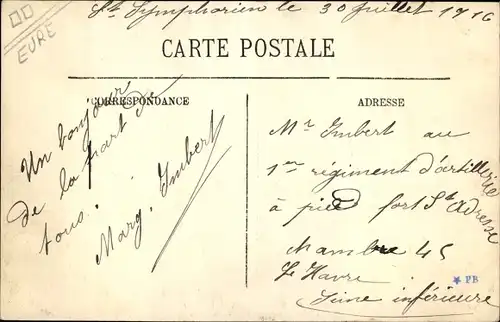 EURE
St Symphorien le 30 Juillet 1916
CARTE POSTALE
CORRESPONDANCE
ADRESSE
Un bonjour
de la part de
tous.
Marg. Imbert
Mr Imbert au
1er régiment d'artillerie
à pied fort Ste Adresse
45
Le Havre
Seine inférieure
PB